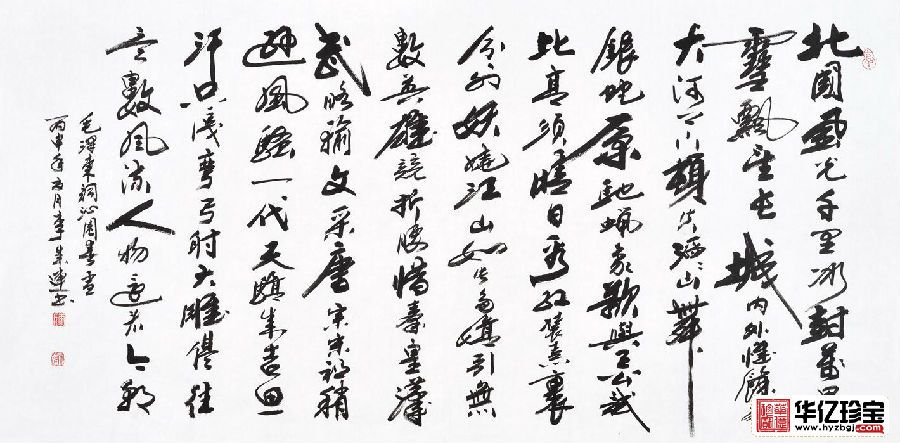 北國風光千里冰封萬里
雪飄望長城內外惟餘莽
大河上下頓失滔滔山舞
銀蛇原馳蠟象欲與天公試
比高須晴日看紅裝素裹
分外妖嬈江山如此多嬌引無
數英雄競折腰惜秦皇漢
武略輸文采唐宗宋祖稍
遜風騷一代天驕成吉思
汗只識彎弓射大雕俱往
矣數風流人物還看今朝
毛澤東詞沁園春雪
丙申年 月李 書
华亿珍宝
www.hyzbgj.com